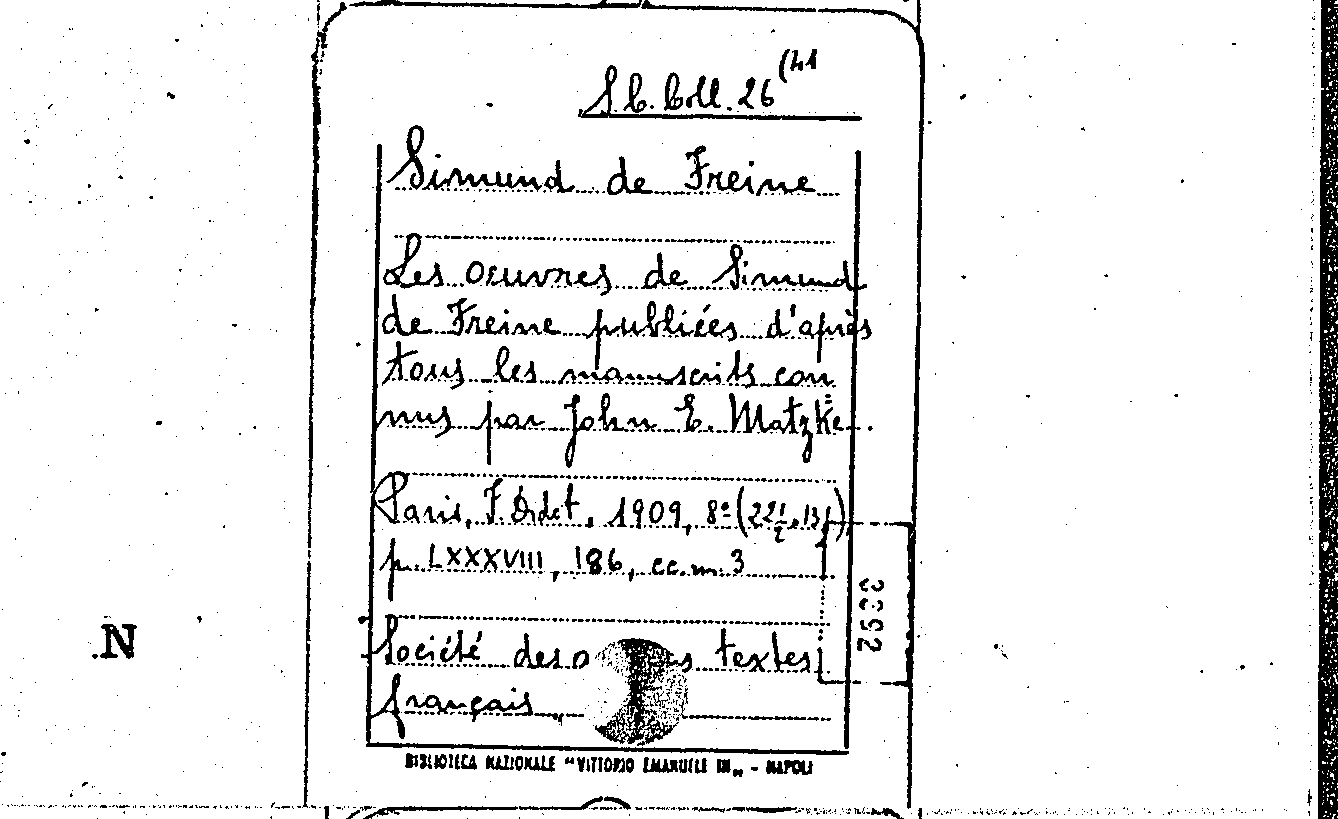 S.C. Coll. 26 (41
Simund de Freine
Les oeuvres de Simund
de Freine publiées d'après
tous les manuscrits con
nus par John E. Matzke.
Paris, F. Didot, 1909, 8º (22½, 13½)
p. LXXXVIII, 186, cc.n. 3
3392
Société des textes
français
N
BIBLIOTECA NAZIONALE "VITTORIO EMANUELE III„ - NAPOLI